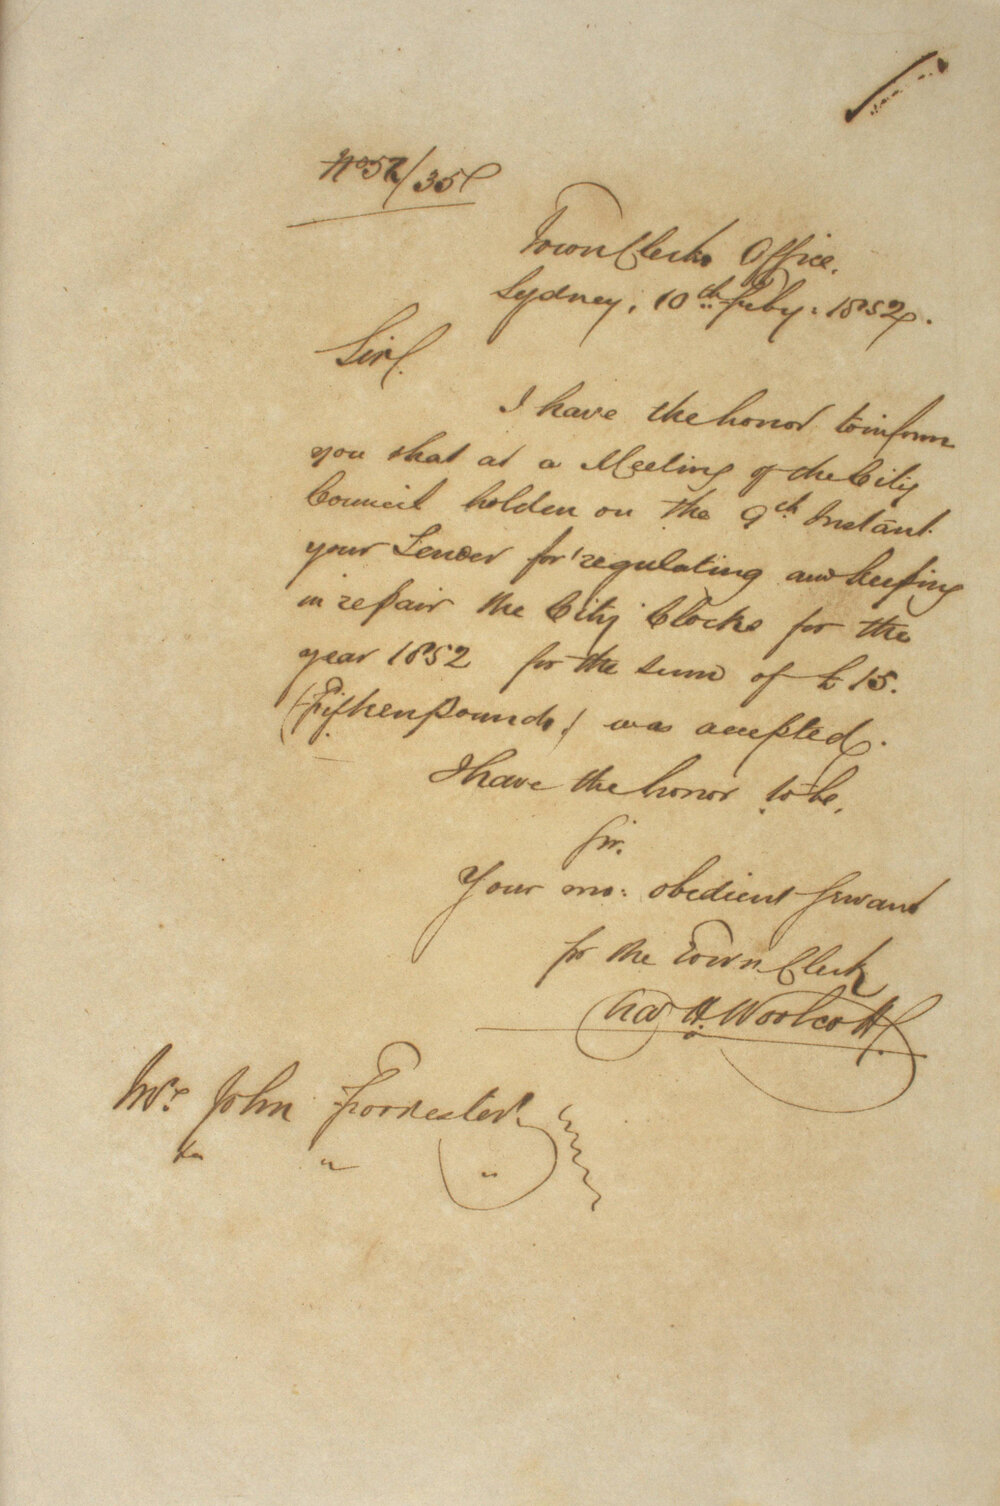 No 52/35
Town Clerks Office.
Sydney, 10th Feby. 1852.
Sir,
I have the honor to inform
you that at a Meeting of the City
Council holden on the 9th Instant
your Tender for regulating and keeping
in repair the City Clocks for the
year 1852 for the sum of £15.
(Fifteen Pounds) was accepted.
I have the honor to be,
Sir.
Your mo: obedient Servant
for the Town Clerk
Chas H. Woolcott
Mr. John Forrester
" " "